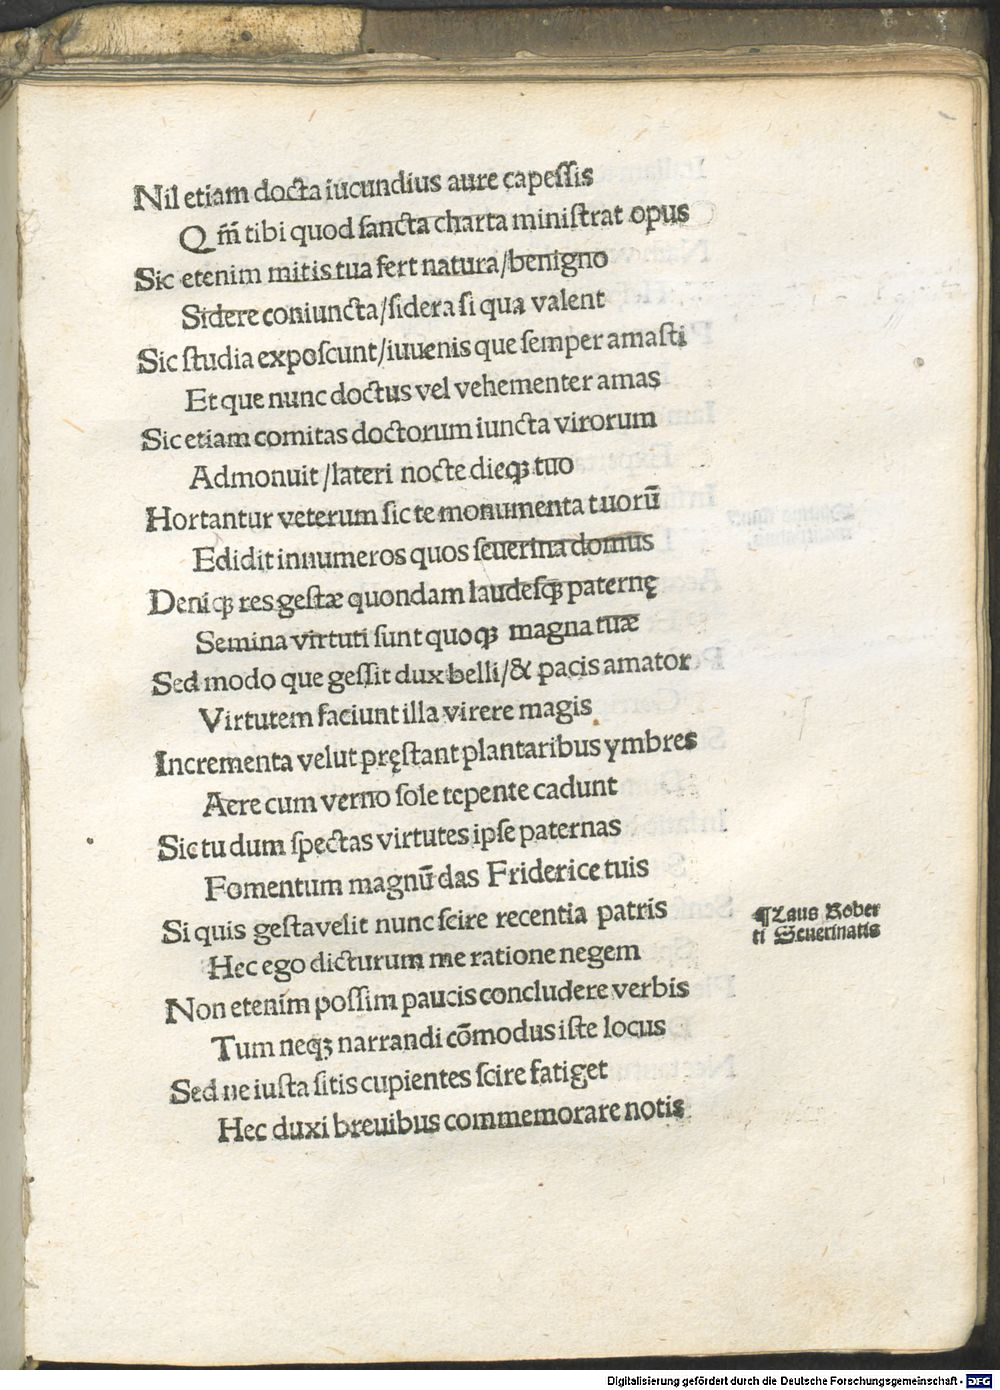 Nil etiam docta iucundius aure capeſſis
Q m̃ tibi quod ſancta charta miniſtrat opus
Sic etenim mitis tua fert natura/benigno
Sidere coniuncta/ſidera ſi qua valent
Sic ſtudia expoſcunt/iuuenis que ſemper amaſti
Et que nunc doctus vel vehementer amas
Sic etiam comitas doctorum iuncta virorum
Admonuit/lateri nocte dieqꝫ tuo
Hortantur veterum ſic te monumenta tuorũ
Edidit innumeros quos ſeuerina domus
Deniqꝫ res geſtæ quondam laudeſqꝫ paternę
Semina virtuti ſunt quoqꝫ magna tuæ
Sed modo que geſſit dux belli/& pacis amator
Virtutem faciunt illa virere magis
Incrementa velut pręſtant plantaribus ymbres
Aere cum verno ſole tepente cadunt
Sic tu dum ſpectas virtutes ipſe paternas
Fomentum magnũ das Friderice tuis
Si quis geſta velit nunc ſcire recentia patris
¶Laus Rober
ti Seuerinatis
Hec ego dicturum me ratione negem
Non etenim poſſim paucis concludere verbis
Tum neqꝫ narrandi cõmodus iſte locus
Sed ne iuſta ſitis cupientes ſcire fatiget
Hec duxi breuibus commemorare notis
Digitalisierung gefördert durch die Deutsche Forschungsgemeinschaft - DFG